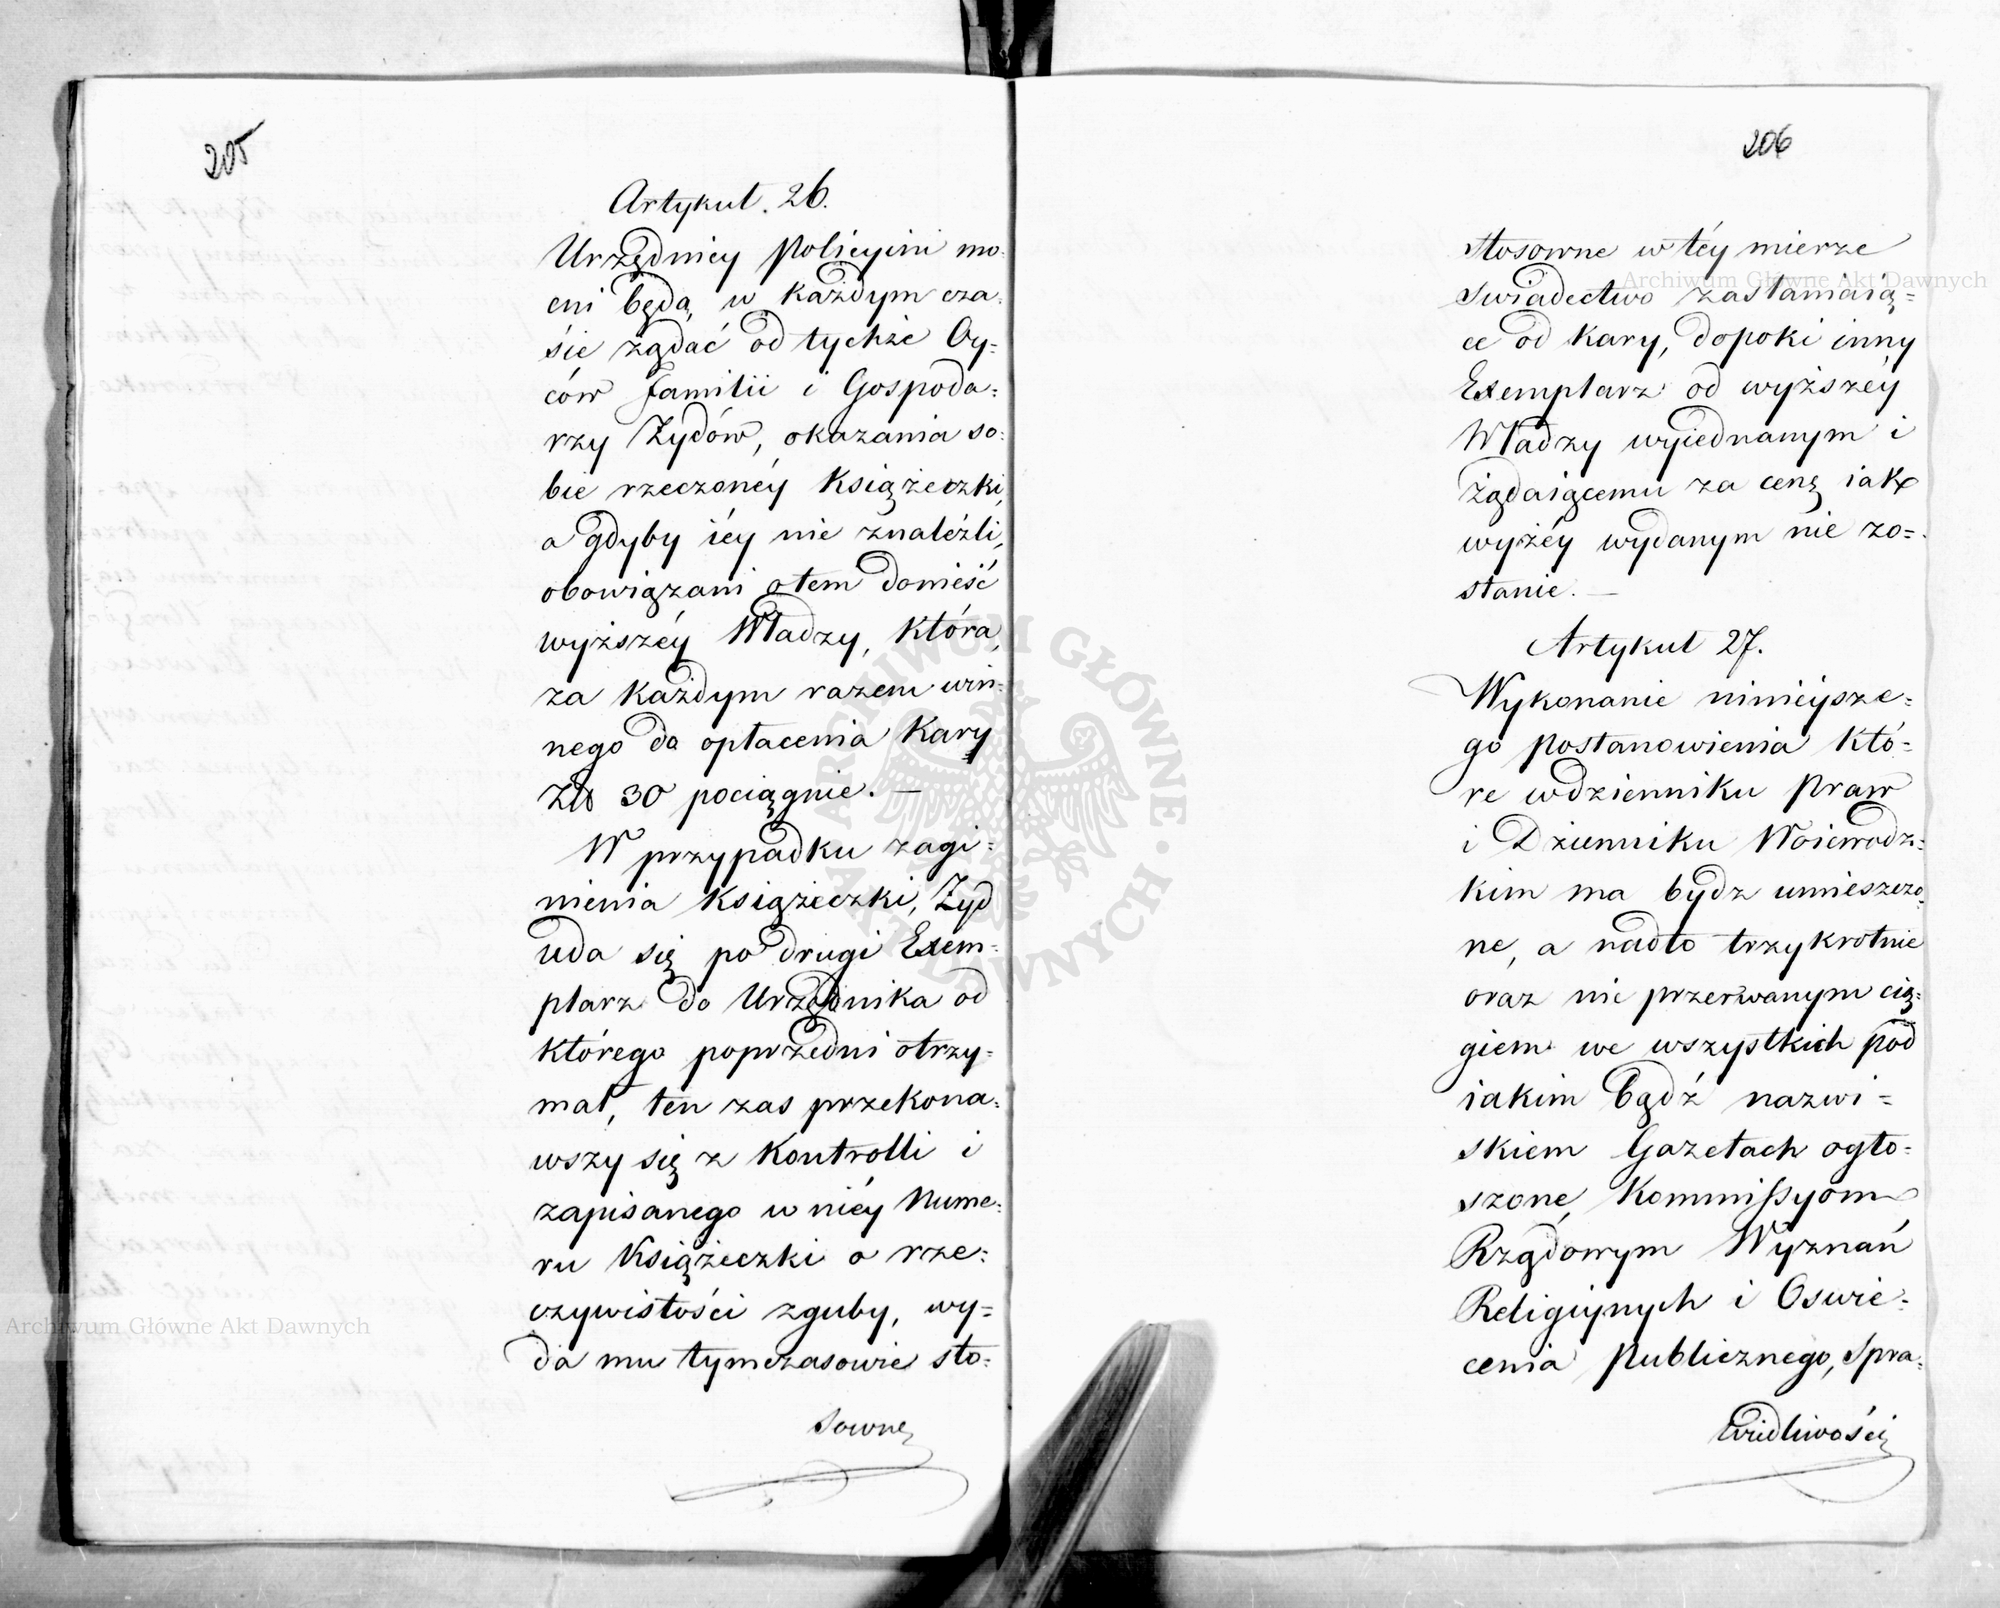 205
Artykuł. 26.
Urzędnicy Policyini mo-
cni będą, w każdym cza-
sie żądać od tychże Oy-
ców familii i Gospoda-
rzy Żydów, okazania so-
bie rzeczonéy Książeczki,
a gdyby iéy nie znaleźli,
obowiązani otem donieść
wyższéy Władzy, która,
za każdym razem win-
nego do opłacenia Kary
Złł 30 pociągnie. —
W przypadku zagi-
nienia Książeczki, Żyd
uda się po drugi Exem-
plarz do Urzędnika od
którego poprzedni otrzy-
mał, ten zas przekona-
wszy się z Kontrolli i
zapisanego w niéy Nume-
ru Książeczki o rze-
czywistości zguby, wy-
da mu tymczasowie sto-
sowne
206
stosowne w téy mierze
swiadectwo zasłaniaią-
ce od kary, dopoki inny
Exemplarz od wyższéy
Władzy wyiednanym i
żądaiącemu za cenę iak
wyżéy wydanym nie zo-
stanie. —
Artykuł 27.
Wykonanie ninieysze-
go postanowienia któ-
re wdzienniku Praw
i Dzienniku Woiewodz-
kim ma bydz umieszczo-
ne, a nadto trzykrotnie
oraz nie przerwanym cią-
giem we wszystkich pod
iakim bądź nazwi-
skiem Gazetach ogło-
szone, Kommissyom
Rządowym Wyznań
Religiynych i Oswie-
cenia Publicznego, Spra-
wiedliwości
Archiwum Główne Akt Dawnych
Archiwum Główne Akt Dawnych
ARCHIWUM GŁÓWNE · AKT DAWNYCH ·